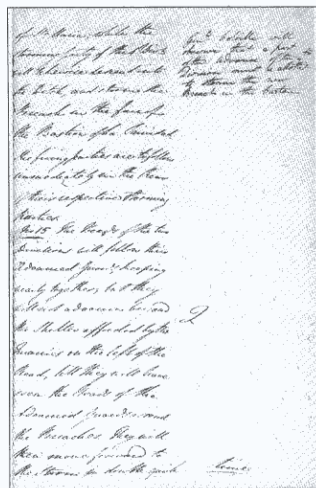 of St. Maria, while the
storming party of the
will likewise be sent into
the Ditch and storm the
Breach in the face of
the Bastion of La Trinidad
the firing parties are to follow
immediately in the rear
of their respective storming
parties.
No 15 The Heads of the two
Divisions will follow their
Advanced Guards keeping
nearly together, but they
will not advance beyond
the shelter afforded by the
Quarries on the left of the
Road, till they will have
seen the Heads of the
Advanced Guards ascend
the Breaches They will
then move forward to
the storm in double quick
time
that a part
of the advance of the
Division must be
to storm the new
Breach in the Curtain